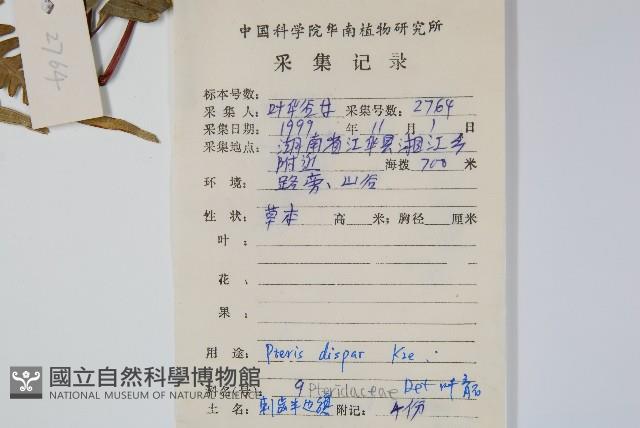 2764
中国科学院华南植物研究所
采集记录
标本号数:
采集人: 叶华谷 采集号数: 2764
采集日期: 1999 年 11 月 1 日
采集地点: 湖南省江华县湘江乡
附近 海拨 700 米
环境: 路旁、山谷
性状: 草本 高 米; 胸径 厘米
叶:
花:
果:
用途: Pteris dispar Kze.
9 Pteridaceae Det 叶
土名: 刺齿半边旗 附记: 4份
國立自然科學博物館
NATIONAL MUSEUM OF NATURAL SCIENCE